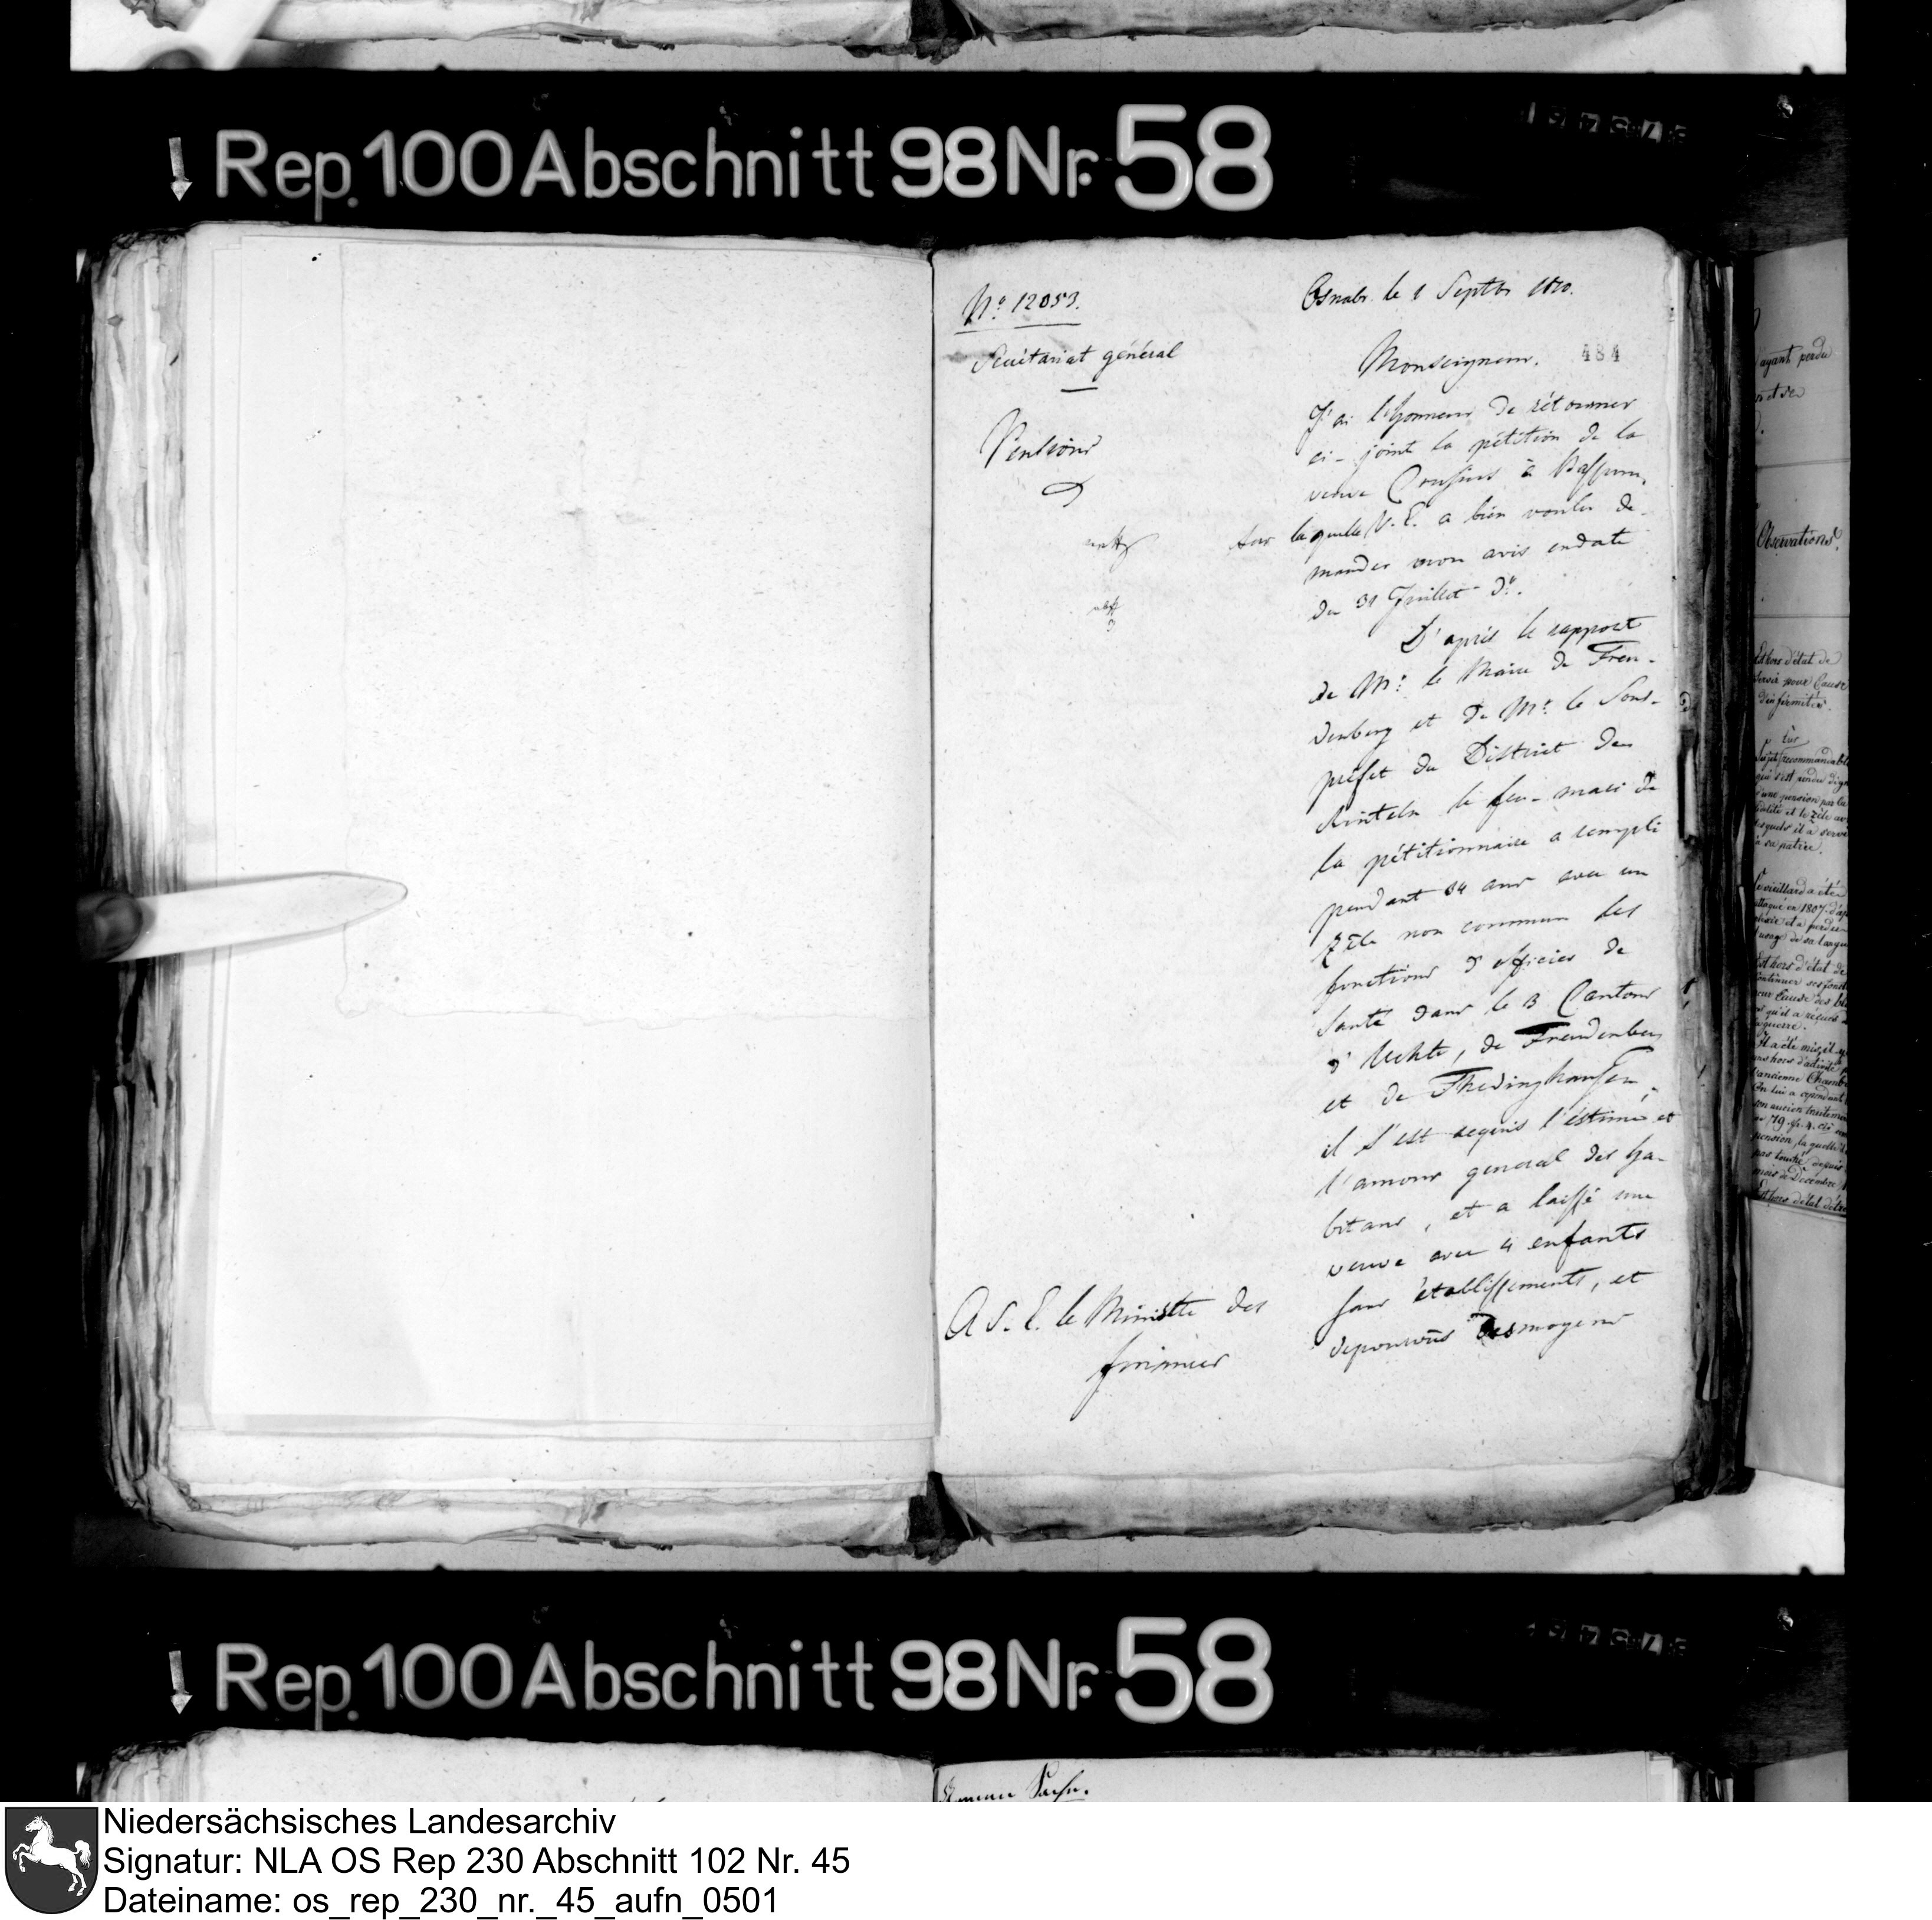 Rep. 100 Abschnitt 98 Nr. 58
No. 12053.
Secrétariat général
Pensions
A S. E. le Ministre des
finances
Osnabr. le 1 Septbr 1810.
484
Monseigneur.
J'ai l'honneur de rétourner
ci-joint la pétition de la
veuve à Bassum,
sur laquelle V. E. a bien voulu de-
mander mon avis en date
du 31 Juillet dr.
D'après le rapport
de Mr. le Maire de Freu-
denberg et de Mr. le Sous-
préfet du District de
Rinteln le feu-mari de
la pétitionnaire a rempli
pendant 34 ans avec un
zèle non commun les
fonctions d'officier de
santé dans les 3 Cantons
d'Uchte, de Freudenberg
et de Thedinghausen,
il s'est acquis l'éstime et
l'amour general des ha-
bitans, et a laissé une
veuve avec 4 enfants
sans établissements, et
depourvûs des moyens
ayant perdu
Observations.
Est hors d'état de
servir pour Cause
d'infirmités.
Sujet très recommandable
qui s'est rendu
d'une pension par la
fidélité et le zèle
lesquels il a servi
à sa patrie.
Ce vieillard a été
attaqué en 1807
et a perdu
l'usage de sa langue
Est hors d'état de
continuer ses
pour Cause des
qu'il a reçues
guerre.
Il a été mis
hors d'activité
l'ancienne
On lui a cependant
son ancien traitement
pension, laquelle
pas touché depuis
mois de Décembre
Est hors d'état
Rep. 100 Abschnitt 98 Nr. 58
Niedersächsisches Landesarchiv
Signatur: NLA OS Rep 230 Abschnitt 102 Nr. 45
Dateiname: os_rep_230_nr._45_aufn_0501